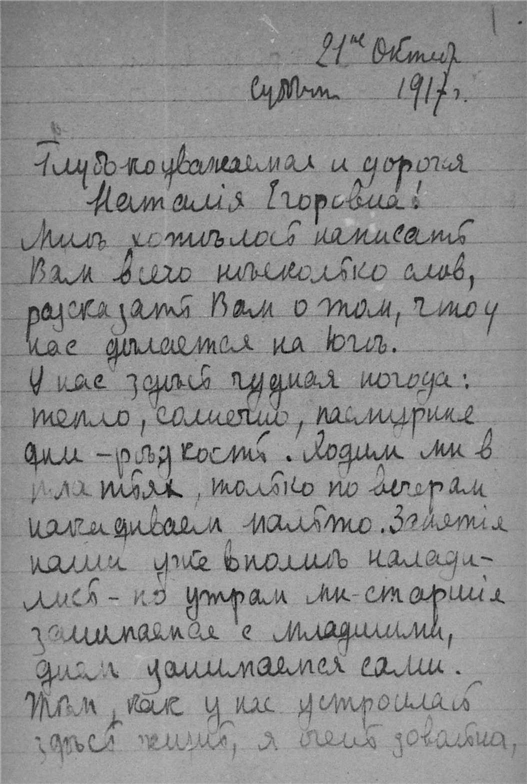 21го Октяб
Суббот. 1917 г.
Глубокоуважаемая и дорогая
Наталія Егоровна!
Мнѣ хотѣлось написать
Вам всего нѣсколько слов,
рассказать Вам о том, что у
нас дѣлается на Югѣ.
У нас здѣсь чудная погода:
тепло, солнечно, пасмурные
дни – рѣдкость. Ходим мы в
платьях, только по вечерам
накидываем пальто. Занятія
наши уже вполнѣ налади-
лись – по утрам мы – старшіе
занимаемся с младшими,
днем занимаемся сами.
Тѣм, как у нас устроилась
здѣсь жизнь, я очень довольна,